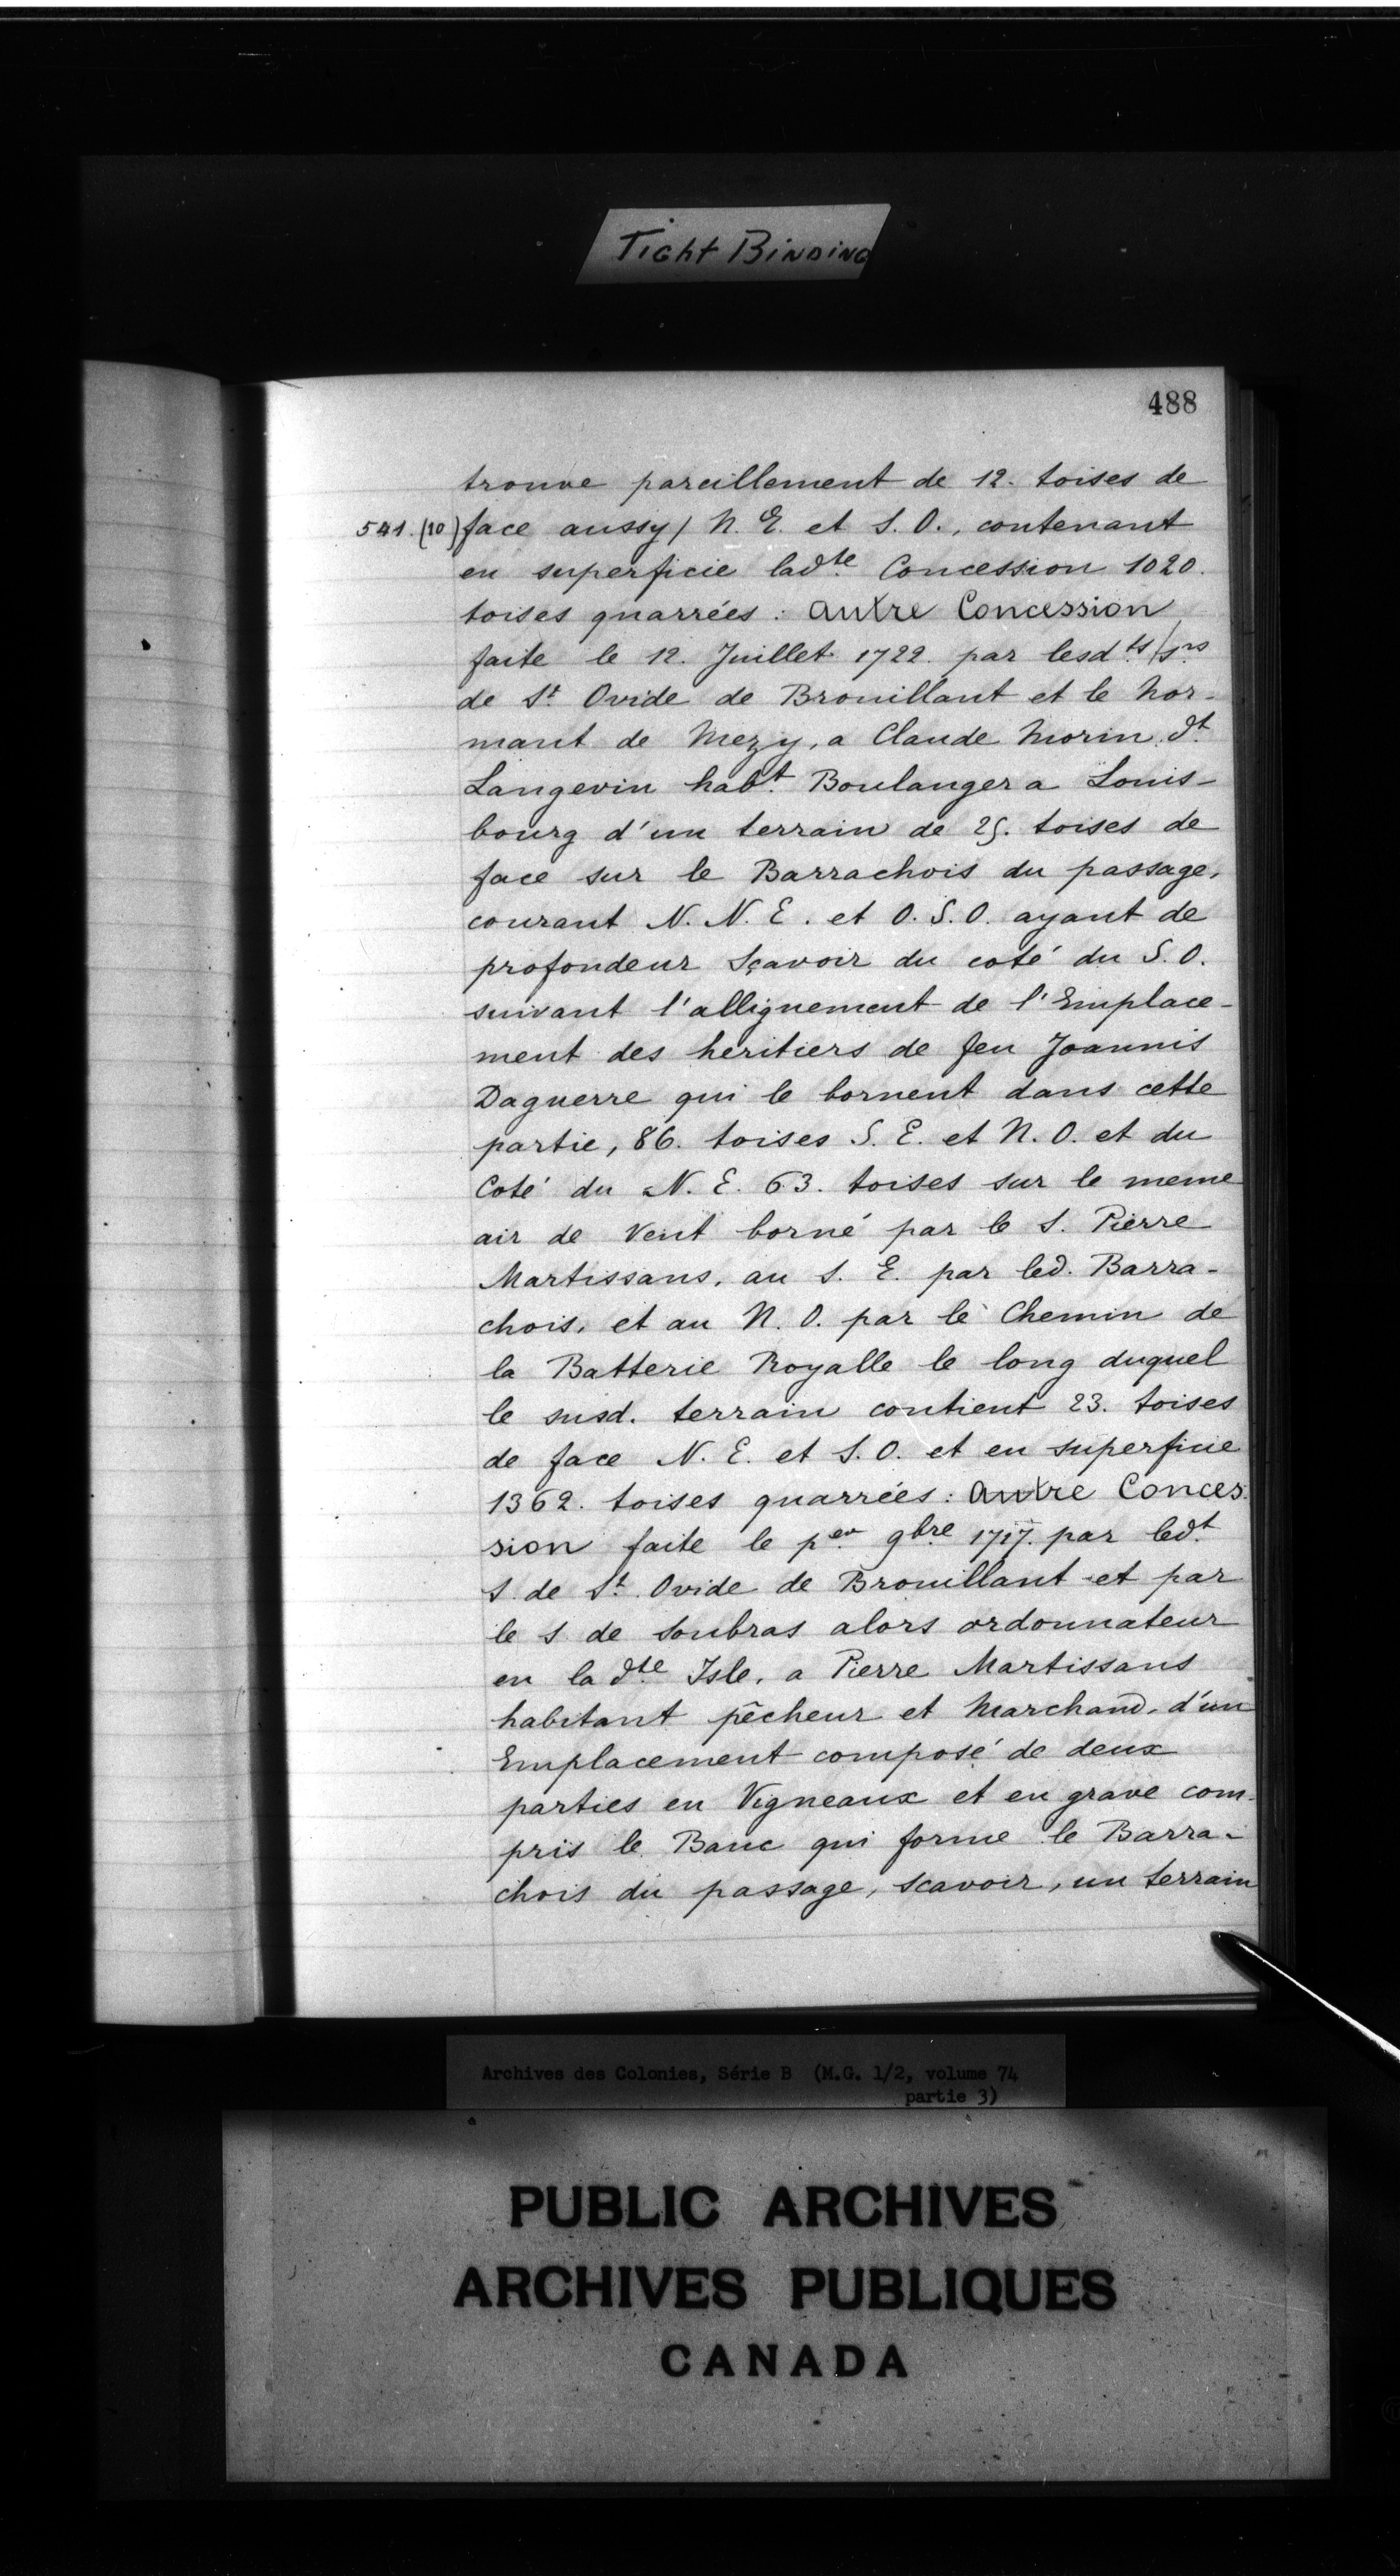 Tight Binding
488
trouve pareillement de 12. toises de
541. (10) face aussy / N. E. et S. O., contenant
en superficie ladte. Concession 1020.
toises quarrées : autre Concession
faite le 12. Juillet 1722. par lesdts. / srs
de St. Ovide de Brouillant et le Nor-
mant de Mezy, a Claude Morin dt.
Langevin habt. Boulanger a Louis-
bourg d'un terrain de 25. toises de
face sur le Barrachois du passage,
courant N. N. E. et O. S. O. ayant de
profondeur sçavoir du coté du S. O.
suivant l'allignement de l'Emplace-
ment des heritiers de feu Joannis
Daguerre qui le bornent dans cette
partie, 86. toises S. E. et N. O. et du
Coté du N. E. 63. toises sur le meme
air de Vent borné par le S. Pierre
Martissans, au S. E. par led. Barra-
chois, et au N. O. par le Chemin de
la Batterie Royalle le long duquel
le susd. terrain contient 23. toises
de face N. E. et S. O. et en superficie
1362. toises quarrées : autre Conces.
sion faite le per. 9bre 1717. par ledt.
S. de St. Ovide de Brouillant et par
le S. de Soubras alors ordonnateur
en la dte. Isle, a Pierre Martissans
habitant pêcheur et Marchand, d'un
Emplacement composé de deux
parties en Vigneaux et en grave com-
pris le Banc qui forme le Barra-
chois du passage, scavoir, un terrain
Archives des Colonies, Série B (M.G. 1/2, volume 74
partie 3)
PUBLIC ARCHIVES
ARCHIVES PUBLIQUES
CANADA